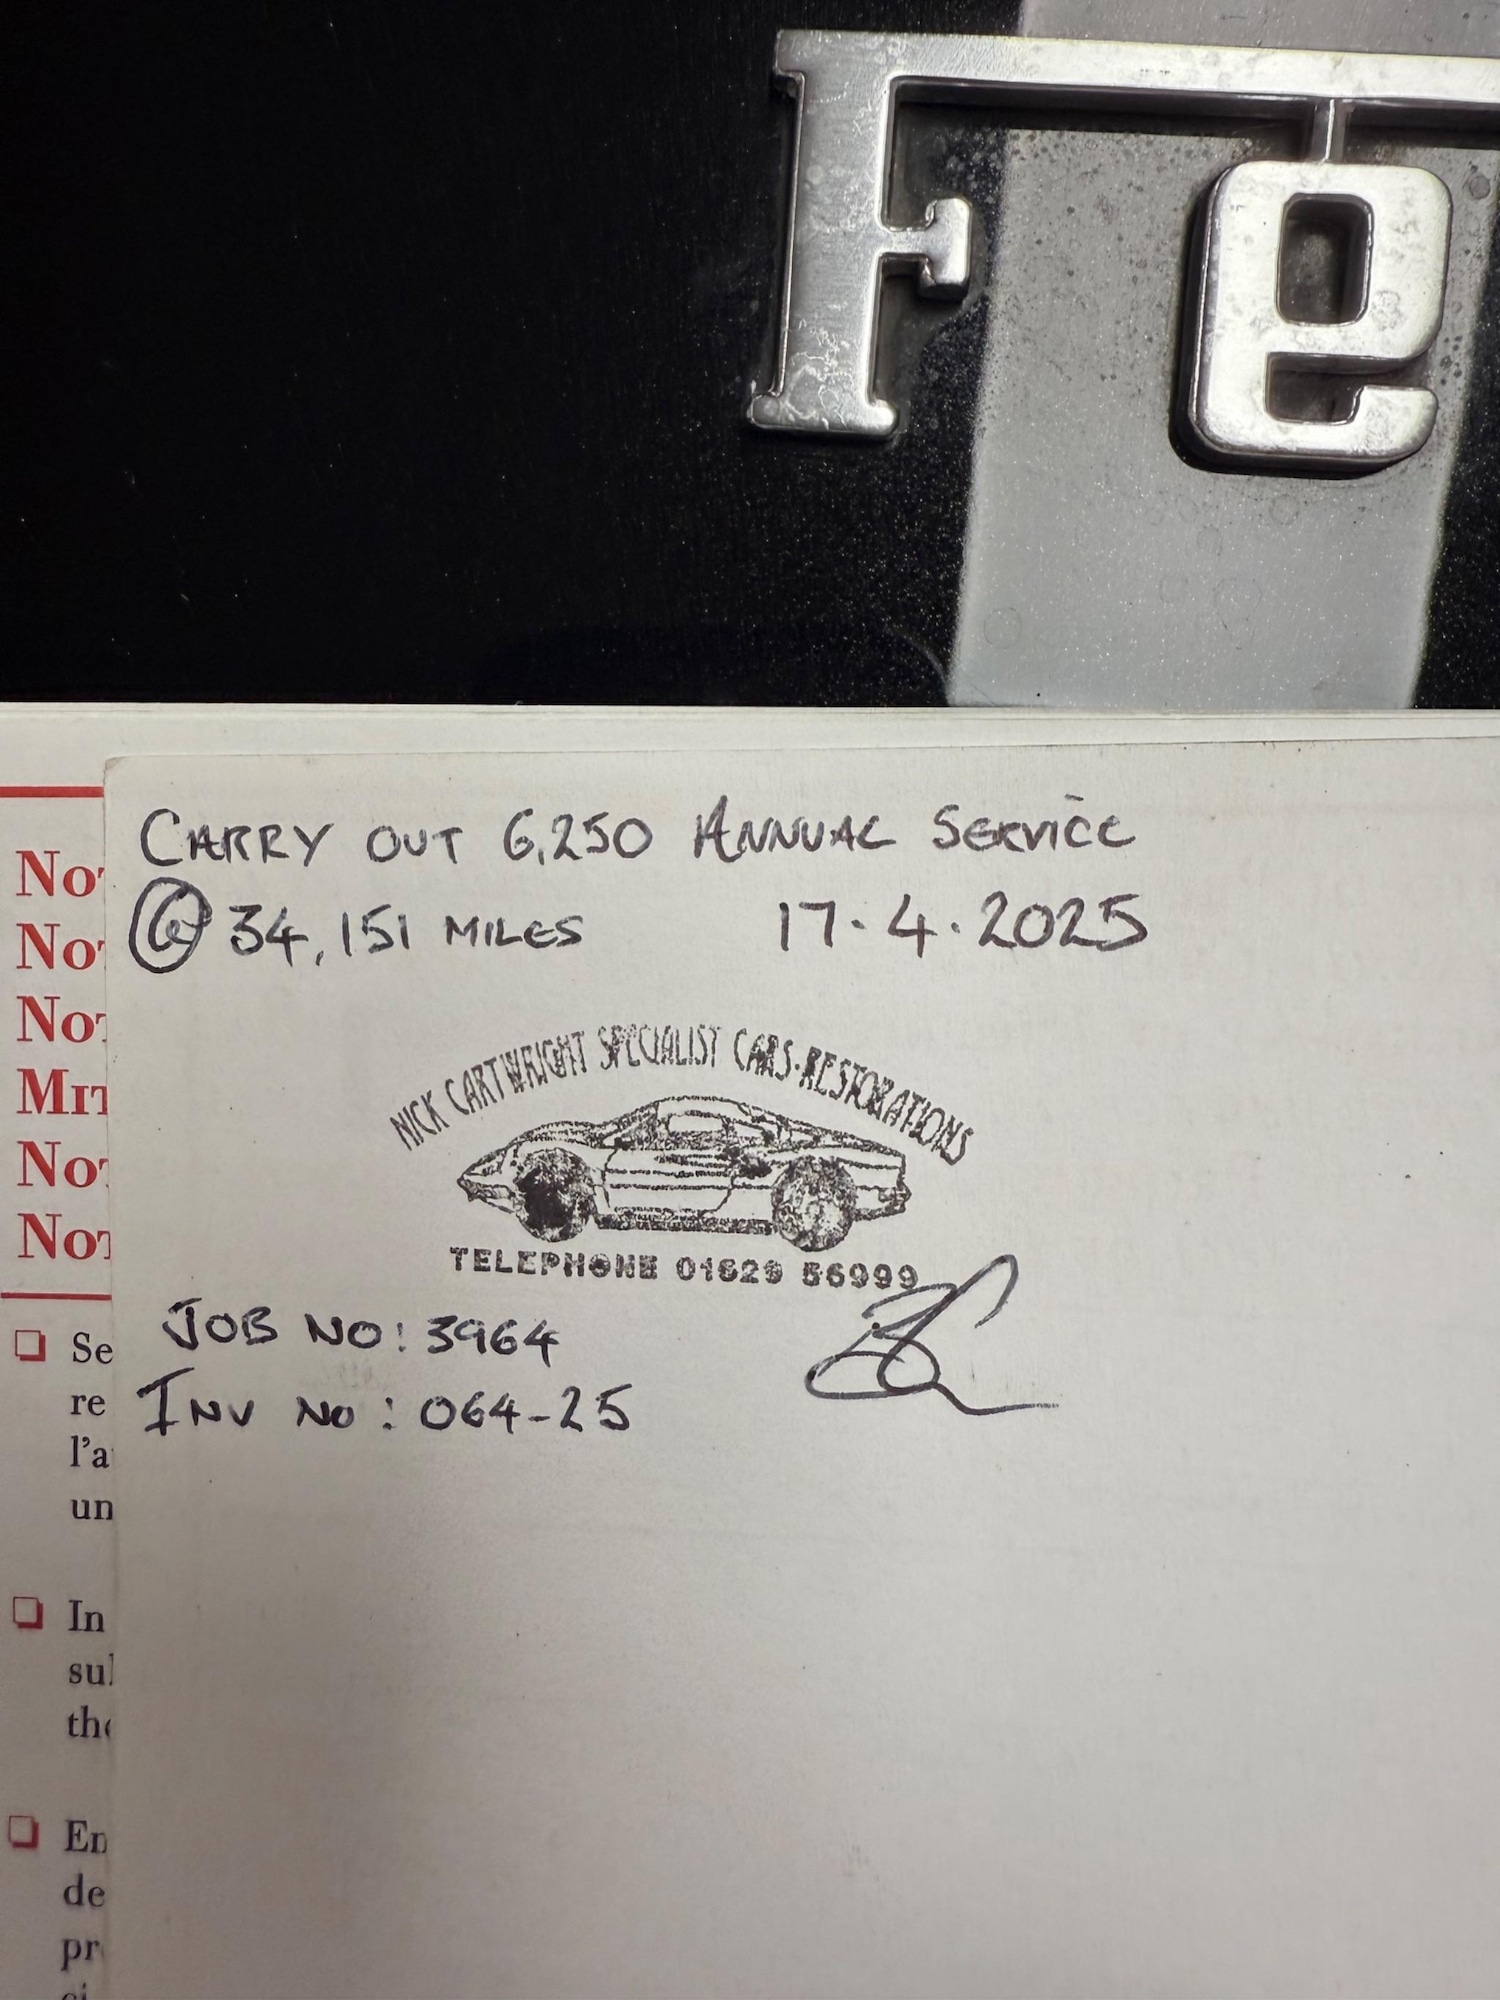 Fe
CARRY OUT 6,250 ANNUAL SERVICE
@ 34,151 MILES 17.4.2025
NICK CARTWRIGHT SPECIALIST CARS·RESTORATIONS
TELEPHONE 01629 56999
JOB NO: 3964
INV NO: 064-25
Se
re
l'a
un
In
su
the
En
de
pr
ci